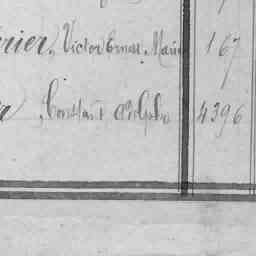 rier, Victor Ernest Marie 167
Constant Adolphe 4396